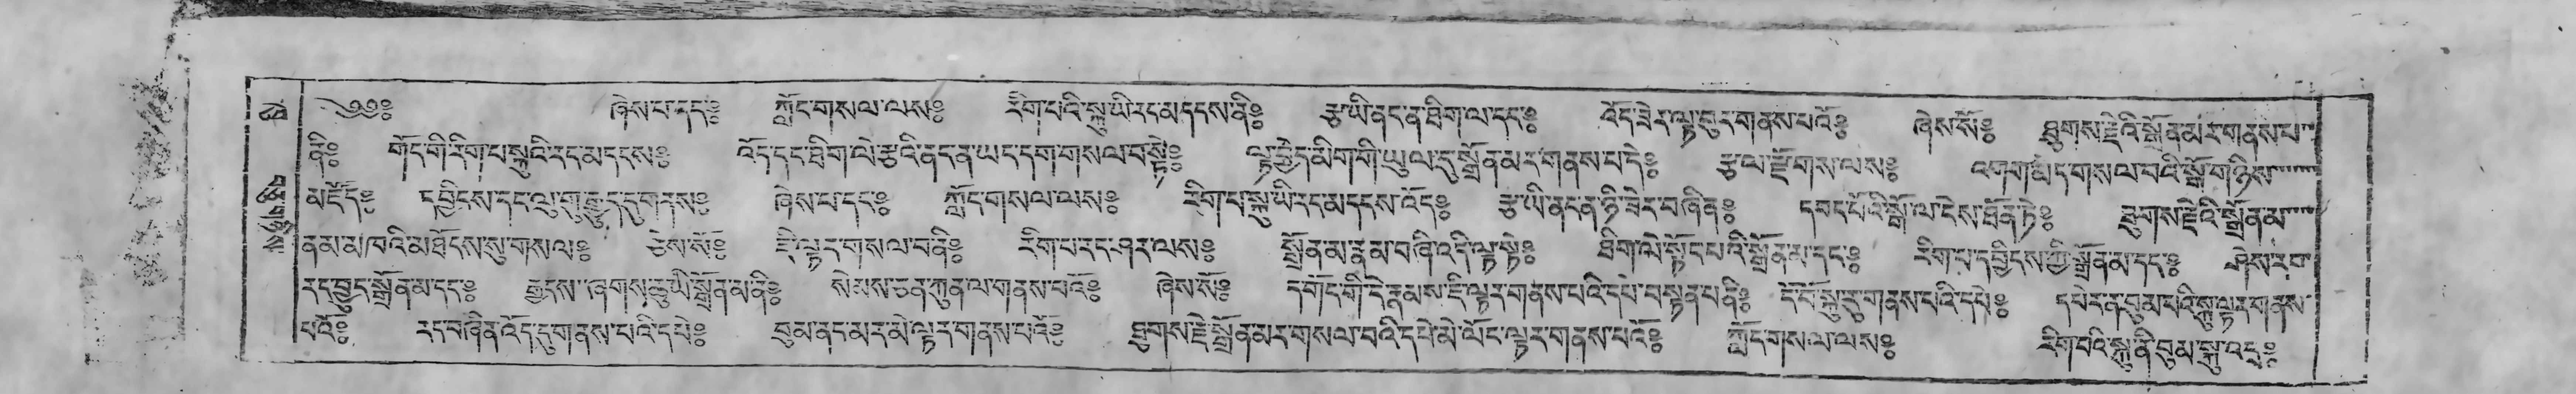 ༄༅༔ ཞེས་པ་དང༔ ཀློང་གསལ་ལས༔ རིག་པའི་སྐུ་ཡི་རང་མདངས་ནི༔ རྩ་ཡི་ནང་ན་ཐིག་ལ་དང༔ འོད་ཟེར་ལྟ་བུར་གནས་པའོ༔ ཞེས་སོ༔ ཐུགས་རྗེའི་སྒྲོན་མར་གནས་པ
ནི༔ གོང་གི་རིག་པ་སྐུའི་རང་མདངས༔ འོད་དང་ཐིག་ལེ་རྩའི་ནང་ན་ཡང་དག་གསལ་བ་སྟེ༔ ལྟ་བྱེད་མིག་གི་ཡུལ་དུ་སྒྲོན་མར་གནས་པ་དེ༔ རྩལ་རྫོགས་ལས༔ འགག་མེད་གསལ་བའི་སྒོ་གཉིས
མདོངས༔ དབྱིངས་དང་ལུ་གུ་རྒྱུད་དུ་གནས༔ ཞེས་པ་དང༔ ཀློང་གསལ་ལས༔ རིག་པ་སྐུ་ཡི་རང་མདངས་འོད༔ རྩ་ཡི་ནང་ན་ཉི་ཟེར་བཞིན༔ དབང་པོའི་སྒོ་ལ་ངེས་ཐོན་ཏེ༔ ཐུགས་རྗེའི་སྒྲོན་མ
ནམ་མཁའི་མཐོངས་སུ་གསལ༔ ཅེས་སོ༔ ཇི་ལྟར་གསལ་བ་ནི༔ རིག་པ་རང་ཤར་ལས༔ སྒྲོན་མ་རྣམ་བཞི་འདི་ལྟ་སྟེ༔ ཐིག་ལེ་སྟོང་པའི་སྒྲོན་མ་དང༔ རིག་པ་དབྱིངས་ཀྱི་སྒྲོན་མ་དང༔ ཤེས་རབ
རང་བྱུང་སྒྲོན་མ་དང༔ རྒྱང་ཞགས་ཆུ་ཡི་སྒྲོན་མ་ནི༔ སེམས་ཅན་ཀུན་ལ་གནས་པའོ༔ ཞེས་སོ༔ ད་གོང་གི་དེ་རྣམས་ཇི་ལྟར་གནས་པའི་དཔེ་བསྟན་པ་ནི༔ ངོ་བོ་སྐུ་རུ་གནས་པའི་དཔེ༔ དཔེར་ན་བུམ་པའི་སྐུ་ལྟར་གནས
པའོ༔ རང་བཞིན་འོད་དུ་གནས་པའི་དཔེ༔ བུམ་ནང་མར་མེ་ལྟར་གནས་པའོ༔ ཐུགས་རྗེ་སྒྲོན་མར་གསལ་བའི་དཔེ་མེ་ལོང་ལྟར་གནས་པའོ༔ ཀློང་གསལ་ལས༔ རིག་པའི་སྐུ་ནི་བུམ་སྐུ་འདྲ༔